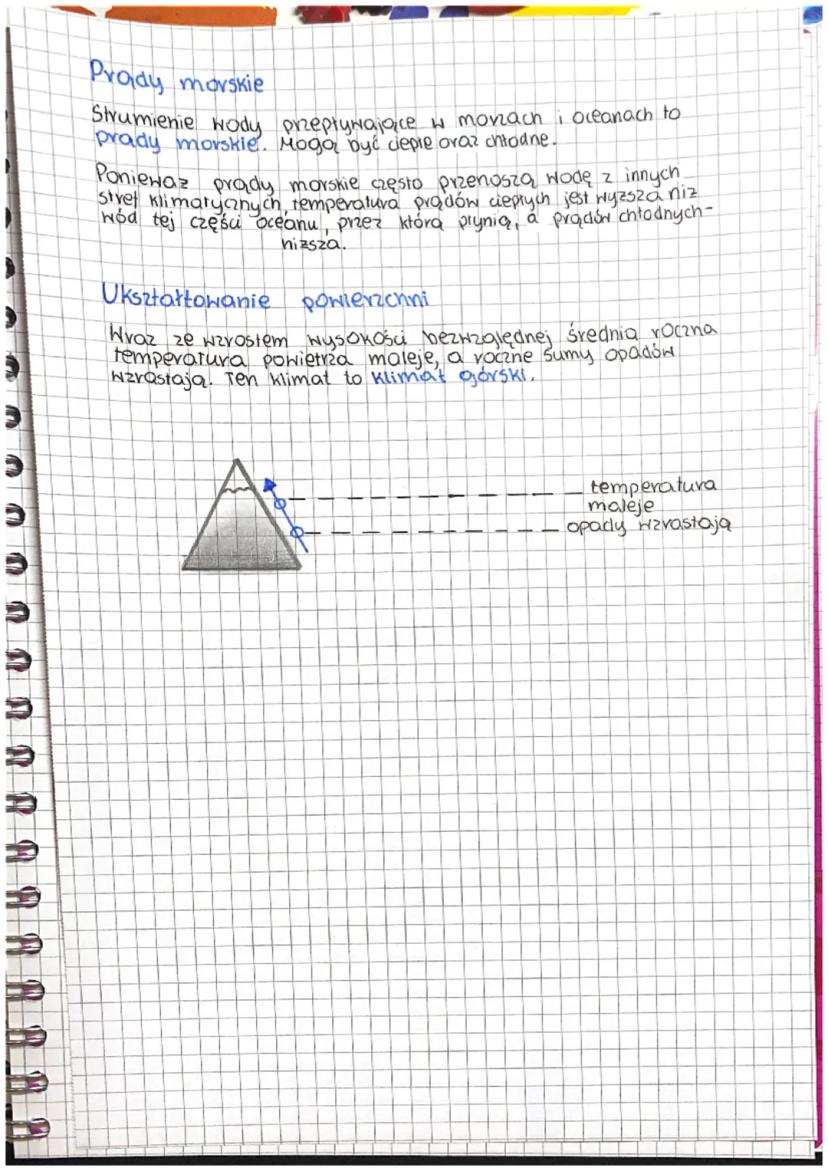 Prądy morskie
Strumienie wody przepływające w morzach i oceanach to
prądy morskie. Mogą być ciepłe oraz chłodne.
Ponieważ prądy morskie często przenoszą wodę z innych
stref klimatycznych, temperatura prądów ciepłych jest wyższa niż
wód tej części oceanu, przez którą płynią, a prądów chłodnych-
niższa.
Ukształtowanie powierzchni
Wraz ze wzrostem wysokości bezwzględnej średnia roczna
temperatura powietrza maleje, a roczne sumy opadów
wzrastają. Ten klimat to klimat górski.
temperatura
maleje
opady wzrastają